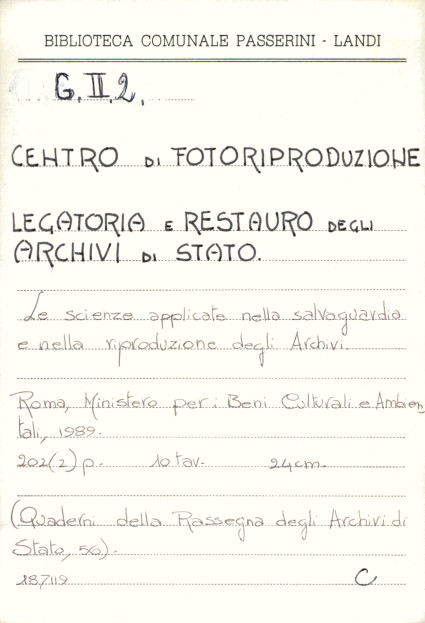 BIBLIOTECA COMUNALE PASSERINI - LANDI
G.II.2.
CENTRO DI FOTORIPRODUZIONE
LEGATORIA E RESTAURO DEGLI
ARCHIVI DI STATO.
Le scienze applicate nella salvaguardia
e nella riproduzione degli Archivi.
Roma, Ministero per i Beni Culturali e Ambien
tali, 1989.
202(2) p. 10 tav. 24 cm.
(Quaderni della Rassegna degli Archivi di
Stato, 56).
187119 C